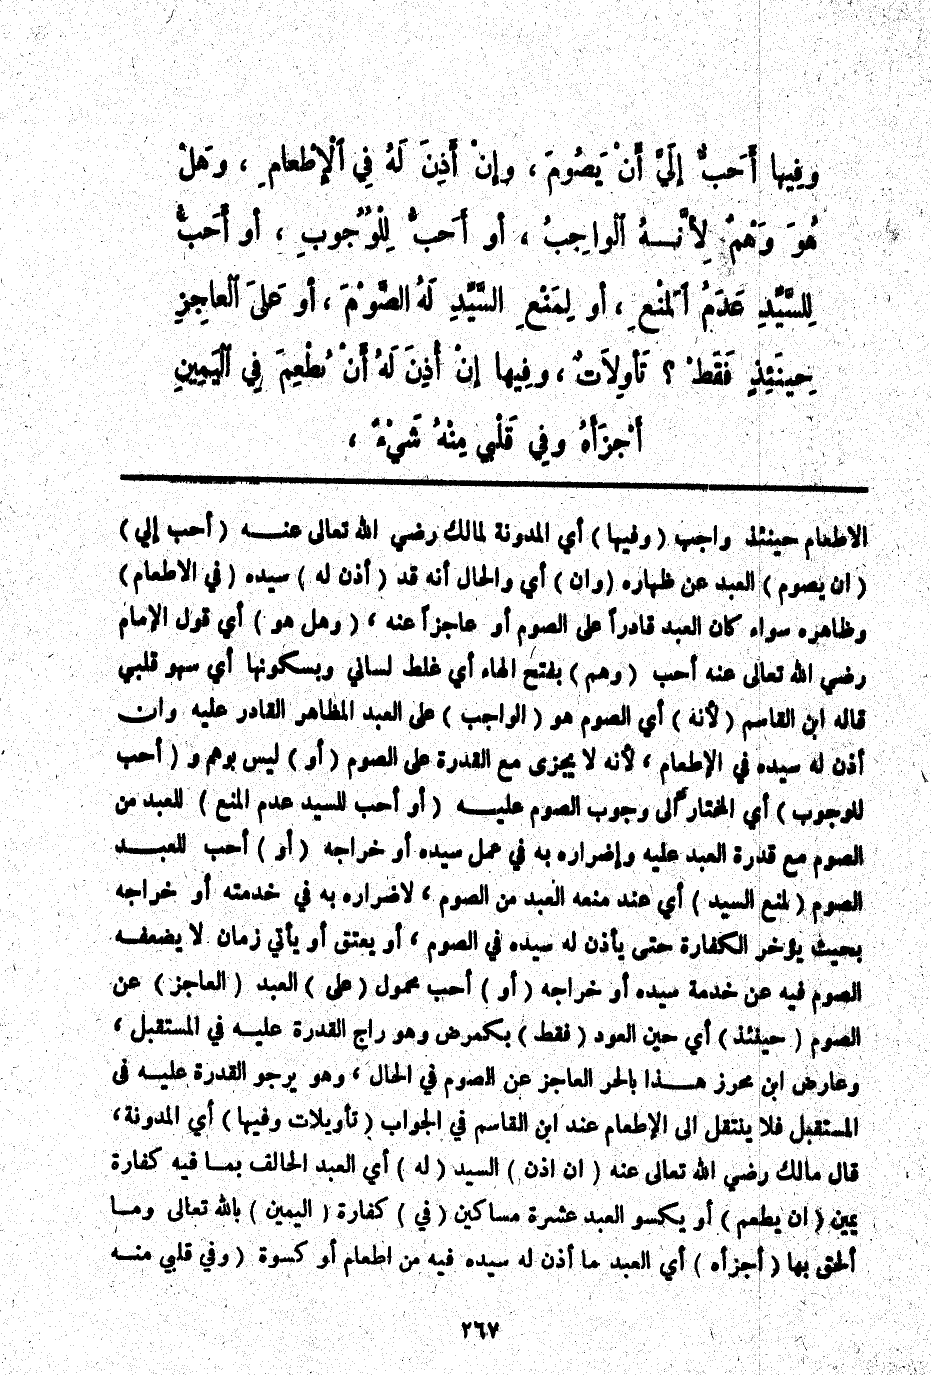 وفِيها أَحَبُّ إلَيَّ أَنْ يَصُومَ ، وإنْ أَذِنَ لَهُ فِي ٱلْإِطْعامِ ، وَهَلْ
هُوَ وَهْمٌ لِأَنَّــهُ ٱلواجِبُ ، أو أَحَبُّ لِلْوُجُوبِ ، أو أَحَبُّ
لِلسَّيِّدِ عَدَمُ ٱلْمَنْعِ ، أو لِمَنْعِ السَّيِّدِ لَهُ الصَّوْمَ ، أو عَلَىَ ٱلْعاجِزِ
حِينَئِذٍ فَقَطْ ؟ تَأوِلاَتٌ ، وفِيها إنْ أُذِنَ لَهُ أَنْ يُطْعِمَ فِي ٱلْيَمِينِ
أَجْزَأهُ وفِي قَلْبِي مِنْهُ شَيْءٌ ،
الاطعام حينئذ واجب ( وفيها ) أي المدونة لمالك رضي الله تعالى عنـــه ( أحب إلي )
( ان يصوم ) العبد عن ظهاره (وان ) أي والحال أنه قد ( أذن له ) سيده ( في الاطعام )
وظاهره سواء كان العبد قادراً على الصوم أو عاجزاً عنه ، ( وهل هو ) أي قول الإمام
رضي الله تعالى عنه أحب ( وهم ) بفتح الهاء أي غلط لساني وبسكونها أي سهو قلبي
قاله ابن القاسم ( لأنه ) أي الصوم هو ( الواجب ) على العبد المظاهر القادر عليه وان
أذن له سيده في الإطعام ، لأنه لا يجزى مع القدرة على الصوم ( أو ) ليس بوهم و ( أحب
للوجوب ) أي المختار الى وجوب الصوم عليــه ( أو أحب للسيد عدم المنع ) للعبد من
الصوم مع قدرة العبد عليه وإضراره به في عمل سيده أو خراجه ( أو ) أحب للعبــد
الصوم ( لمنع السيد ) أي عند منعه العبد من الصوم ، لاضراره به في خدمته أو خراجه
بحيث يؤخر الكفارة حتى يأذن له سيده في الصوم ، أو يعتق أو يأتي زمان لا يضعفـه
الصوم فيه عن خدمة سيده أو خراجه ( أو ) أحب محمول ( على ) العبد ( العاجز ) عن
الصوم ( حينئذ ) أي حين العود ( فقط ) بكمرض وهو راج القدرة عليـه في المستقبل ،
وعارض ابن محرز هـــذا بالحر العاجز عن الصوم في الحال ، وهو يرجو القدرة عليـه فى
المستقبل فلا ينتقل الى الإطعام عند ابن القاسم في الجواب ( تأويلات وفيها ) أي المدونة ،
قال مالك رضي الله تعالى عنه ( ان اذن ) السيد ( له ) أي العبد الحالف بمـا فيه كفارة
يمين ( ان يطعم ) أو يكسو العبد عشرة مساكين ( في ) كفارة ( اليمين ) بالله تعالى ومـا
ألحق بها ( أجزأه ) أي العبد ما أذن له سيده فيه من اطعام أو كسوة ( وفي قلبي منـه
٢٦٧